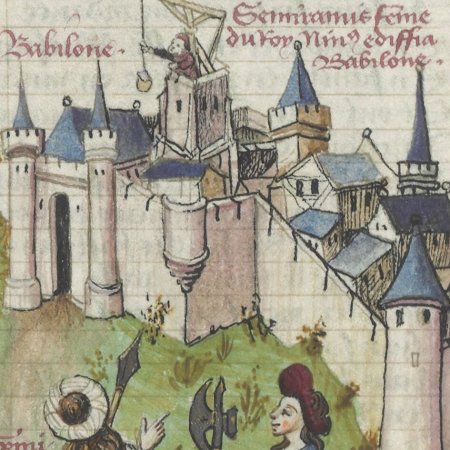 Babilone ·
Semiramis fēme
du roy Ninꝰ ediffia
Babilone ·